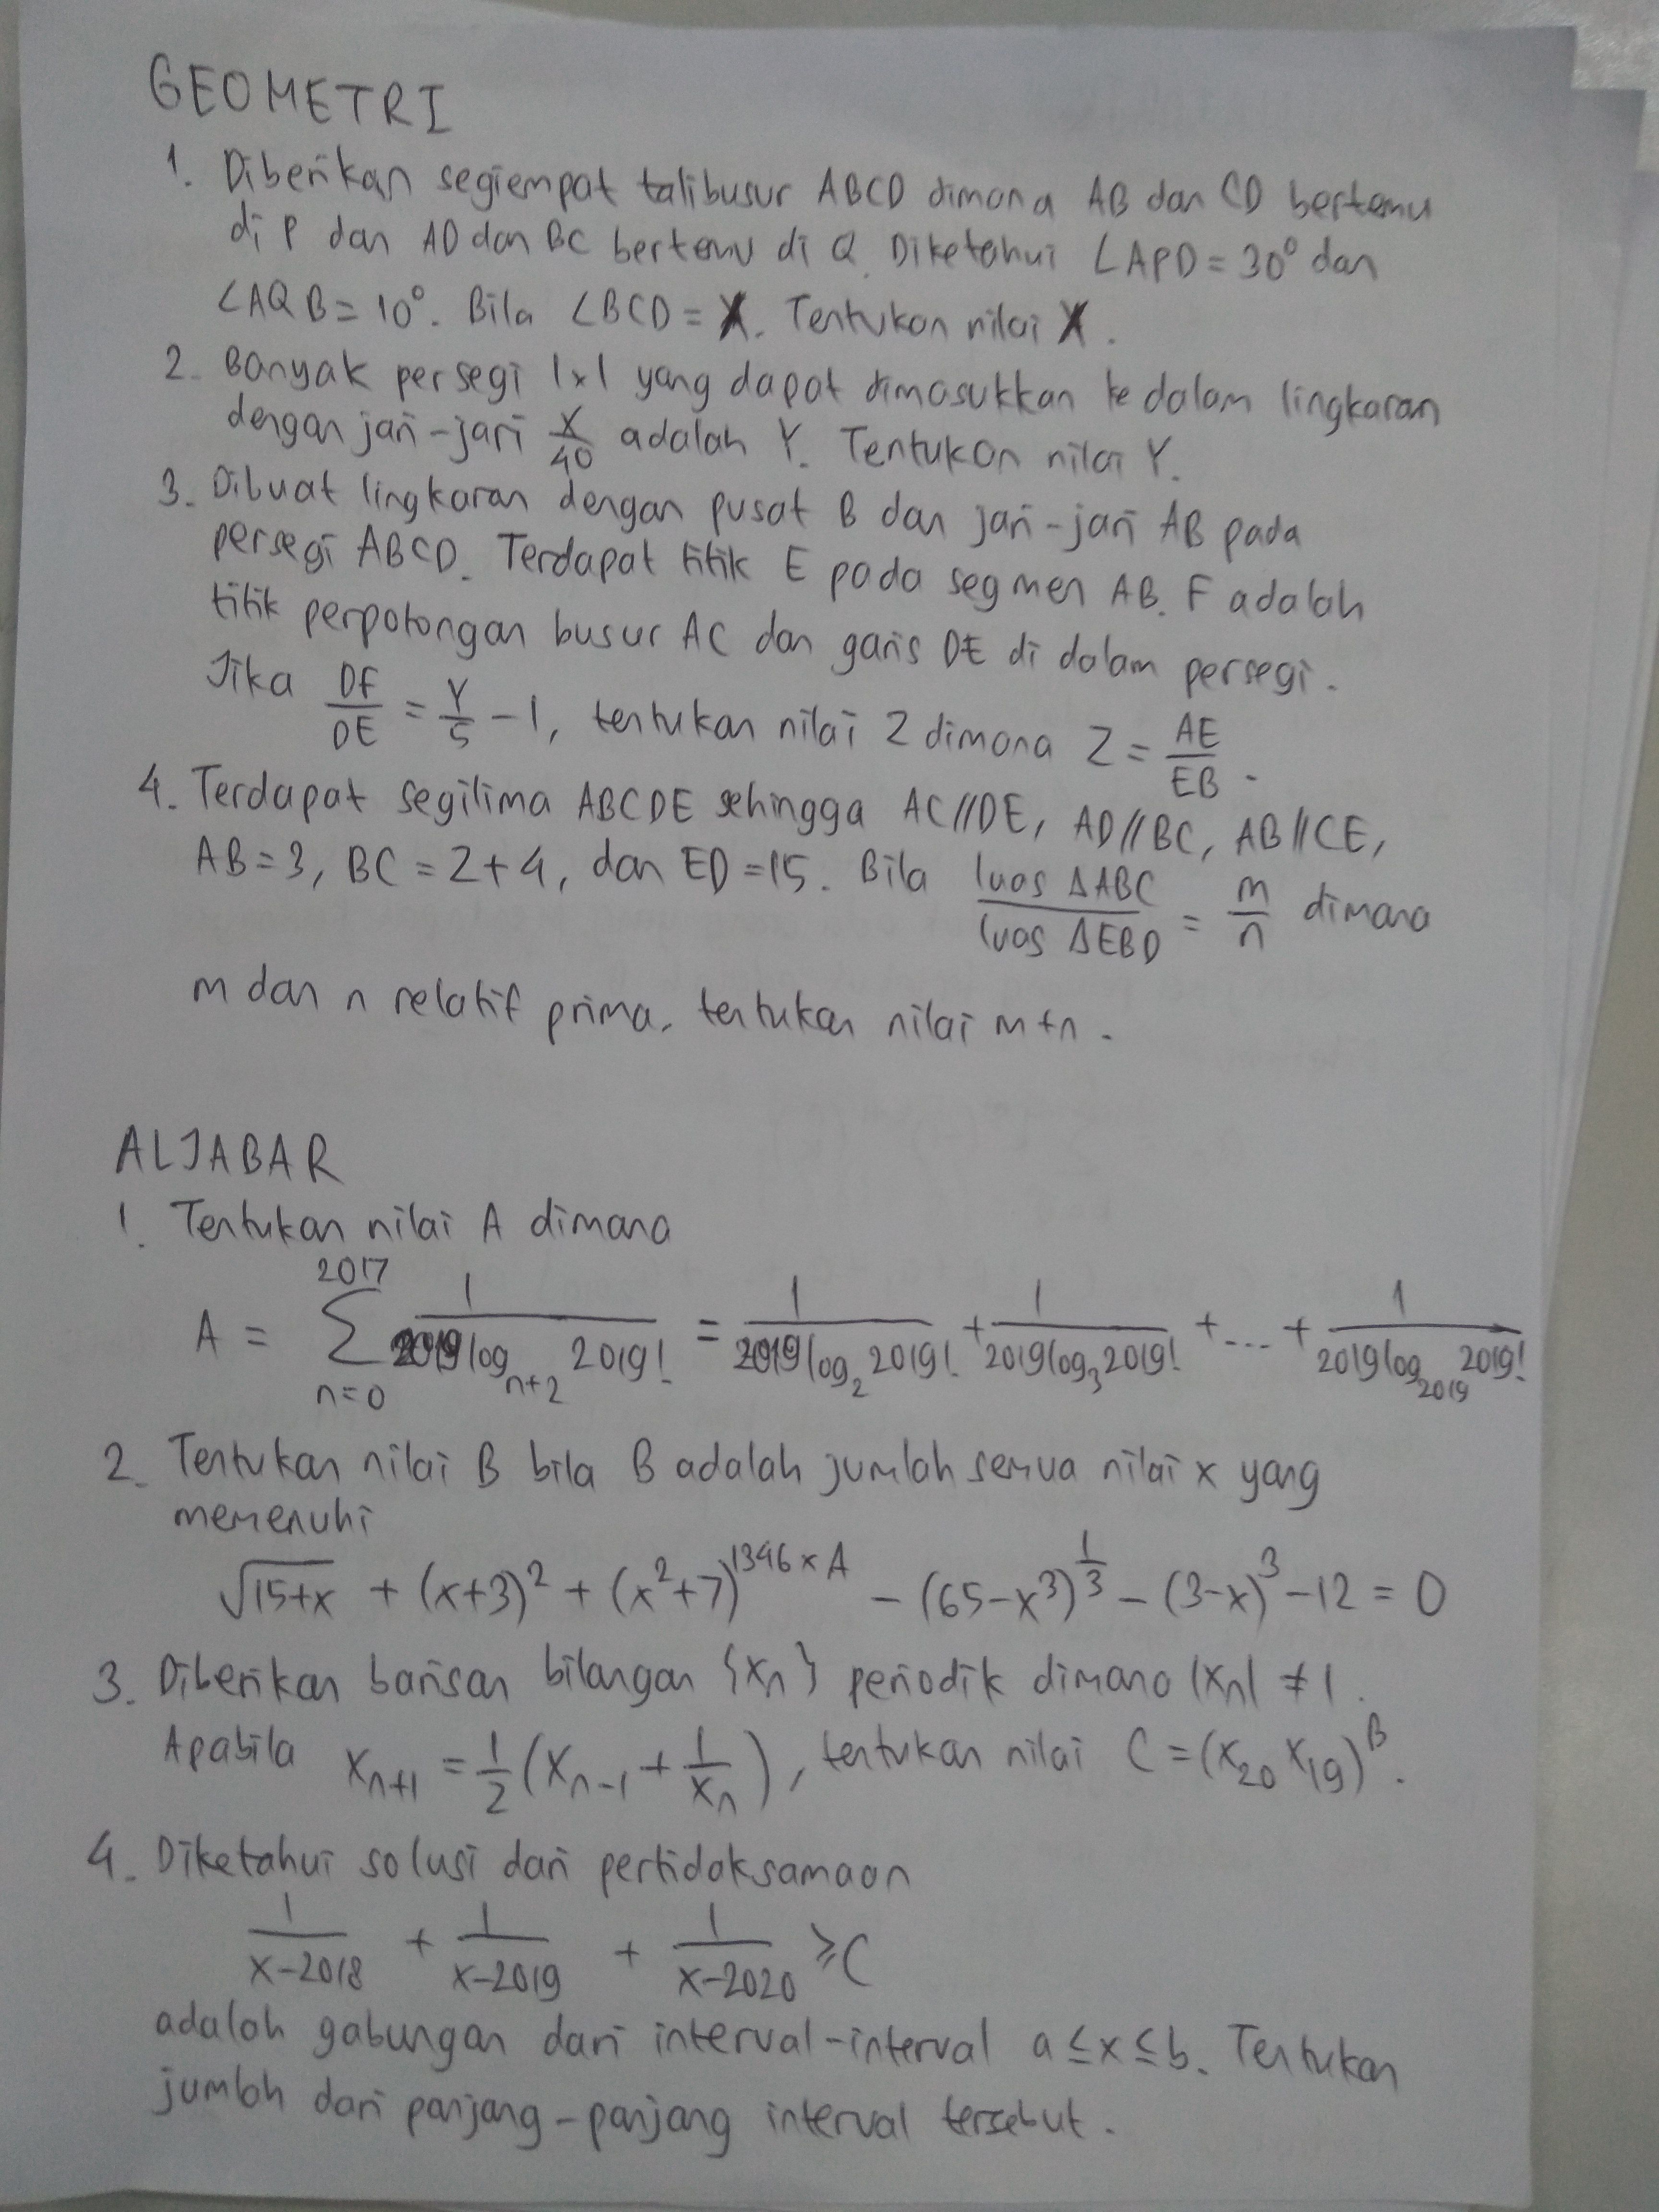 GEOMETRI
1. Diberikan segiempat talibusur ABCD dimana AB dan CD bertemu
di P dan AD dan BC bertemu di Q. Diketahui ∠APD = 30° dan
∠AQB = 10°. Bila ∠BCD = X. Tentukan nilai X.
2. Banyak persegi 1x1 yang dapat dimasukkan ke dalam lingkaran
dengan jari-jari X/40 adalah Y. Tentukan nilai Y.
3. Dibuat lingkaran dengan pusat B dan jari-jari AB pada
persegi ABCD. Terdapat titik E pada segmen AB. F adalah
titik perpotongan busur AC dan garis DE di dalam persegi.
Jika DF/DE = Y/5 - 1, tentukan nilai Z dimana Z = AE/EB.
4. Terdapat segilima ABCDE sehingga AC//DE, AD//BC, AB//CE,
AB = 3, BC = Z + 4, dan ED = 15. Bila luas ΔABC / luas ΔEBD = m/n dimana
m dan n relatif prima, tentukan nilai m+n.
ALJABAR
1. Tentukan nilai A dimana
A = ∑_{n=0}^{2017} 1/(2019 log_{n+2} 2019!) = 1/(2019 log_2 2019!) + 1/(2019 log_3 2019!) + ... + 1/(2019 log_2019 2019!)
2. Tentukan nilai B bila B adalah jumlah semua nilai x yang
memenuhi
√(15+x) + (x+3)² + (x²+7)^{1346 x A} - (65-x³)^{1/3} - (3-x)³ - 12 = 0
3. Diberikan barisan bilangan {x_n} periodik dimana |x_n| ≠ 1.
Apabila x_{n+1} = 1/2 (x_{n-1} + 1/x_n), tentukan nilai C = (x_20 x_19)^B.
4. Diketahui solusi dari pertidaksamaan
1/(x-2018) + 1/(x-2019) + 1/(x-2020) ≥ C
adalah gabungan dari interval-interval a ≤ x ≤ b. Tentukan
jumlah dari panjang-panjang interval tersebut.